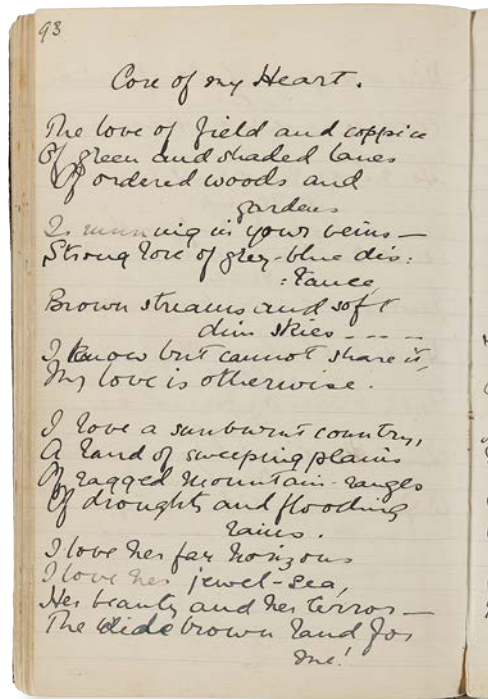 93
Core of my Heart.
The love of field and coppice
Of green and shaded lanes
Of ordered woods and
gardens
Is running in your veins —
Strong love of grey-blue dis:
:tance,
Brown streams and soft
dim skies ----
I know but cannot share it,
My love is otherwise.
I love a sunburnt country,
A land of sweeping plains
Of ragged mountain-ranges
Of droughts and flooding
rains.
I love her far horizons
I love her jewel-sea,
Her beauty and her terror —
The wide brown land for
me!